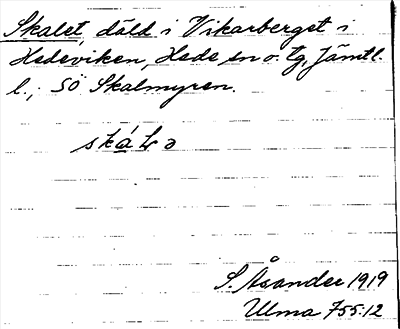 Skalet, däld i Vikarberget i
Hedeviken, Hede sn o. tg, Jämtl.
l.; SÖ Skalmyren.
skálə
S. Åsander 1919
Ulma 755:12